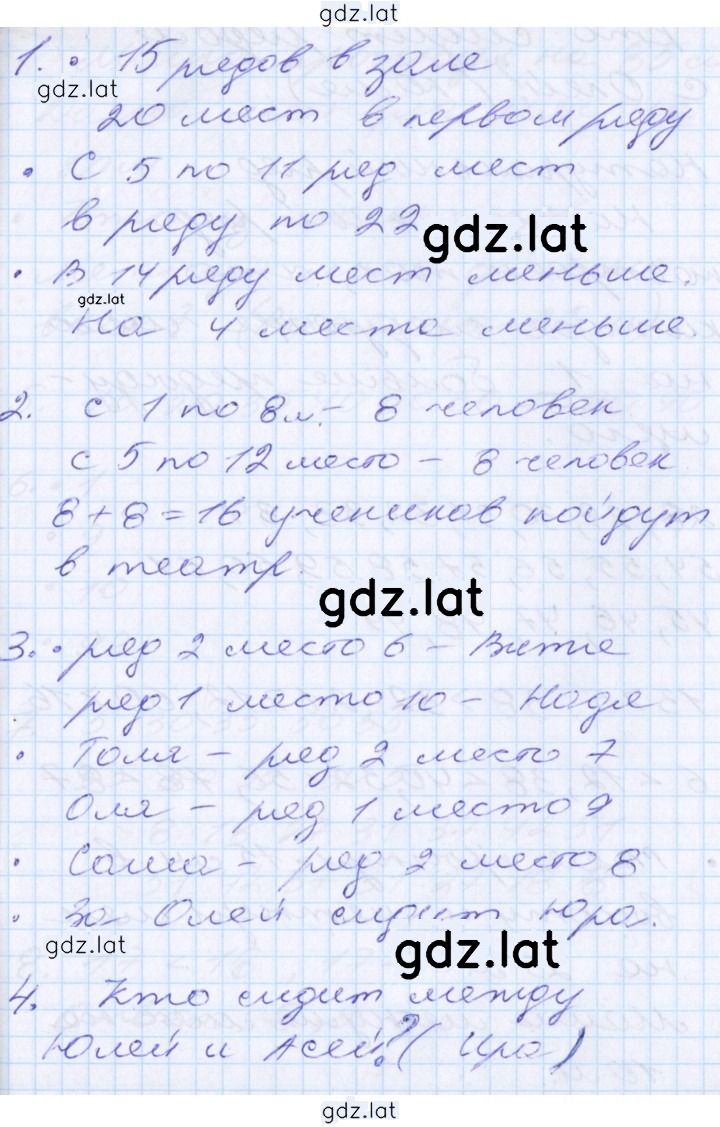 gdz.lat
1. • 15 рядов в зале
gdz.lat
20 мест в первом ряду
• С 5 по 11 ряд мест
в ряду по 22
gdz.lat
• В 14 ряду мест меньше.
gdz.lat
На 4 места меньше.
2. с 1 по 8 м. – 8 человек
с 5 по 12 место – 8 человек
8 + 8 = 16 учеников пойдут
в театр.
gdz.lat
3. • ряд 2 место 6 – Витя
ряд 1 место 10 – Надя
• Толя – ряд 2 место 7
Оля – ряд 1 место 9
• Саша – ряд 2 место 8
• За Олей сидит Юра.
gdz.lat
gdz.lat
4. Кто сидит между
Юлей и Асей? (Ира)
gdz.lat